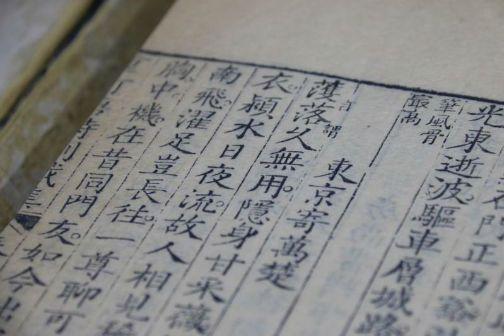 門正西谿
光東逝波。驅車層城路
筆風骨
最高
東京寄萬楚
濩落久無用。隱身甘采薇
衣。潁水日夜流。故人相見稀
南飛。濯足豈長往。一尊聊可
胸中機。在昔同門友。如今出